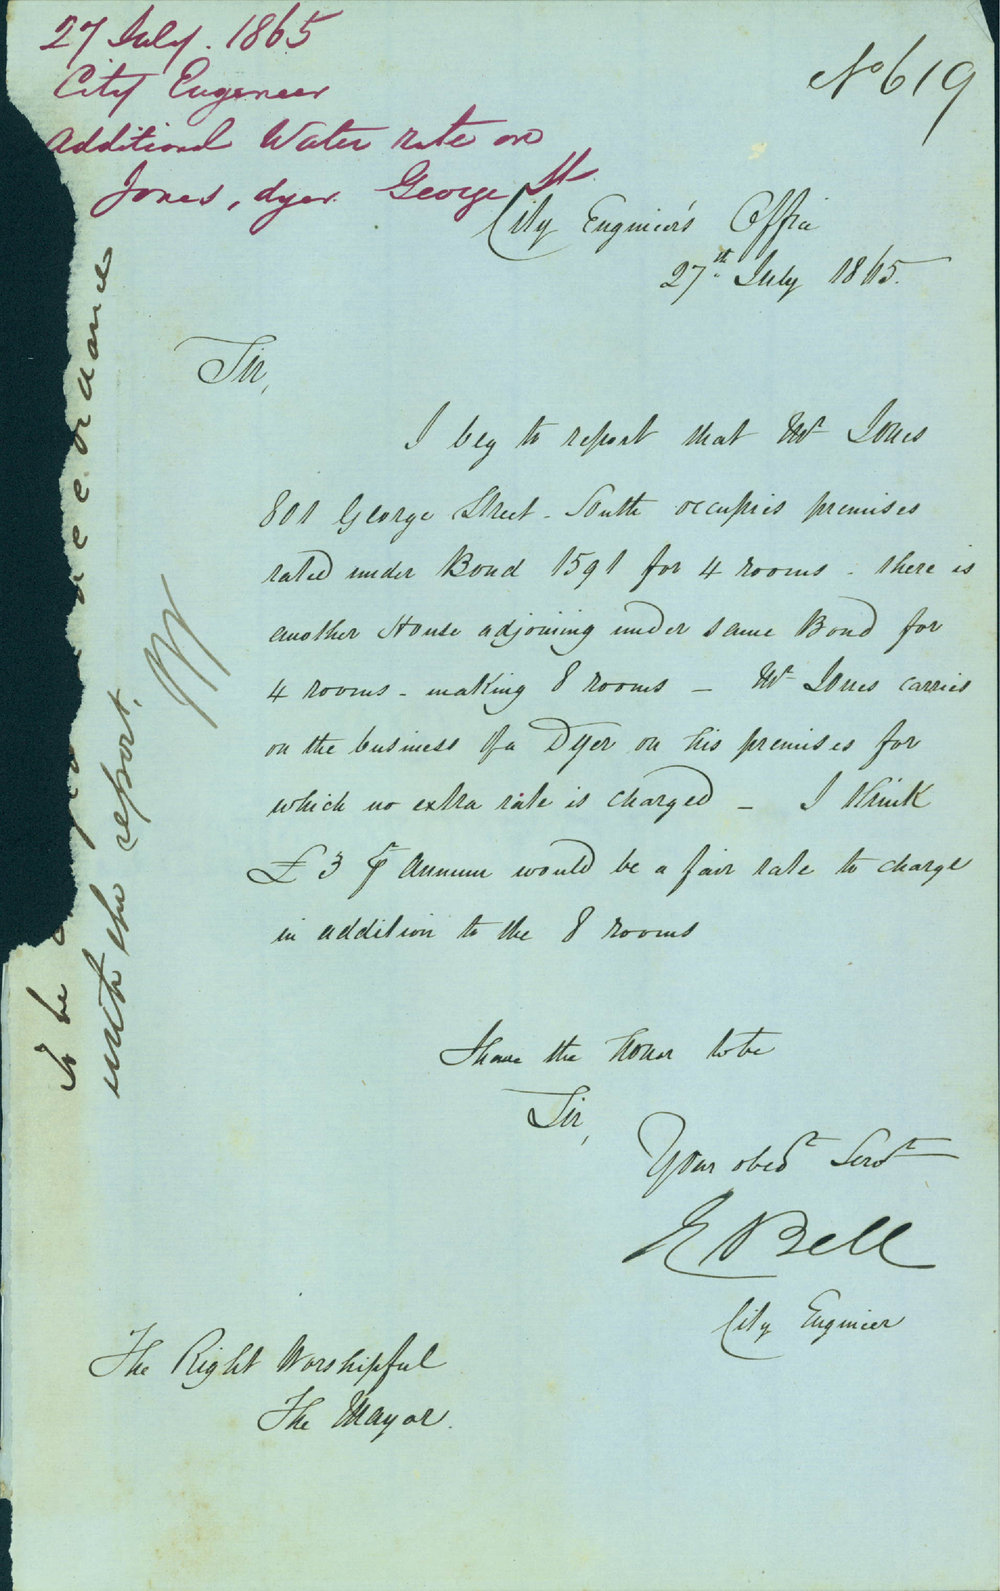 27 July. 1865
City Engeneer
Additional Water rate on
Jones, dyer. George St.
No 619
City Engineer's Office
27th July 1865.
Sir,
I beg to report that Mr Jones
801 George Street - South occupies premises
rated under Bond 1591 for 4 rooms - there is
another House adjoining under same Bond for
4 rooms - making 8 rooms — Mr Jones carries
on the business of a Dyer on his premises for
which no extra rate is charged — I think
£3 ⅌ Annum would be a fair rate to charge
in addition to the 8 rooms
I have the honor to be
Sir,
Your obedt Servt
E Bell
City Engineer
The Right Worshipful
The Mayor.
To be accordance
with the report.